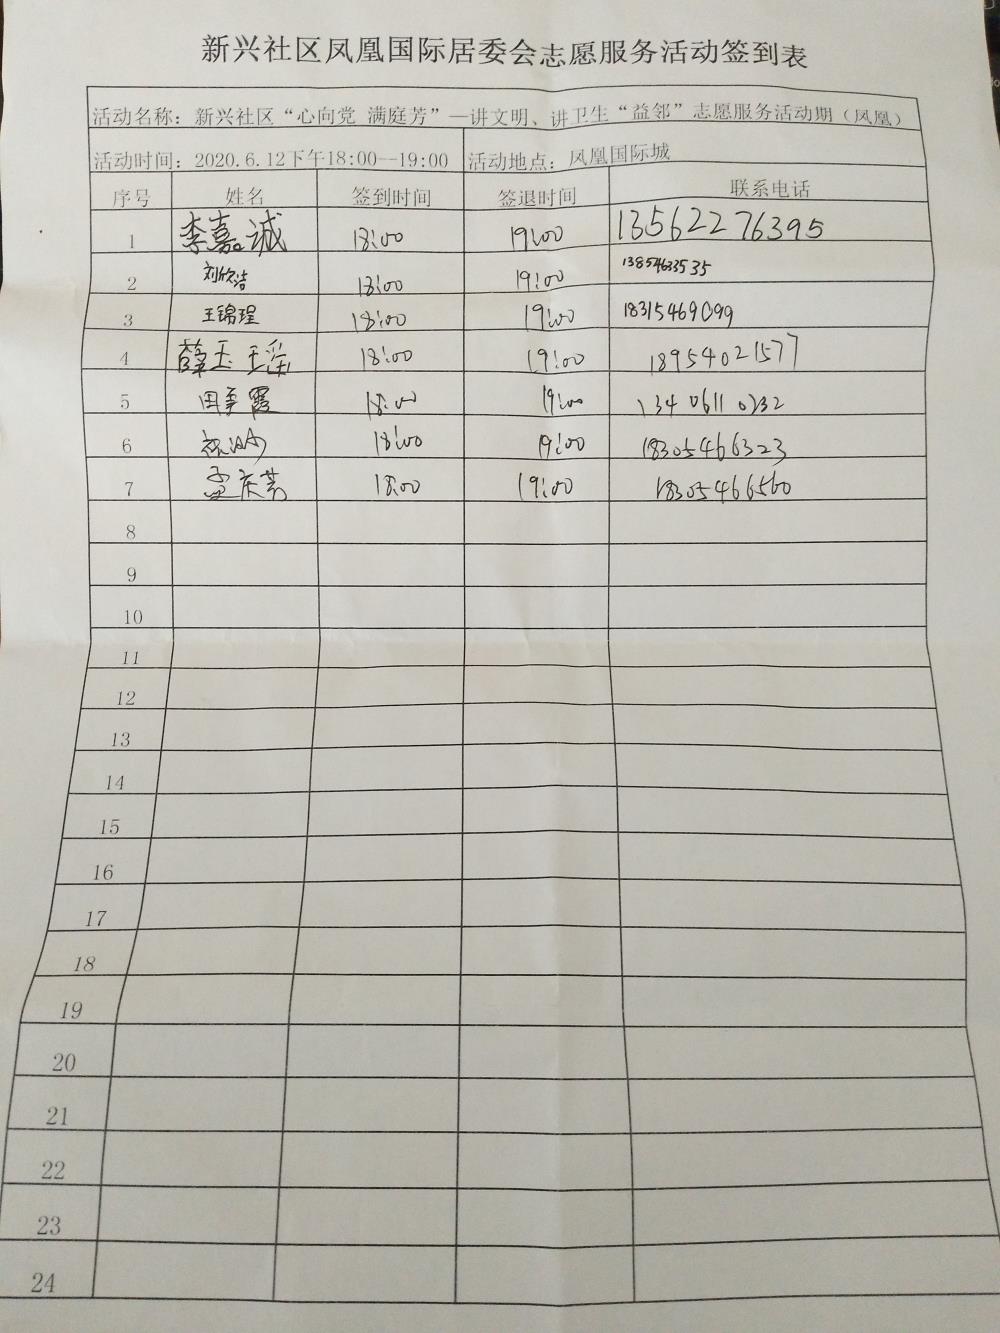 新兴社区凤凰国际居委会志愿服务活动签到表
活动名称：新兴社区“心向党 满庭芳”—讲文明、讲卫生“益邻”志愿服务活动期（凤凰）
活动时间：2020.6.12下午18:00--19:00 活动地点：凤凰国际城
序号 姓名 签到时间 签退时间 联系电话
1 李嘉诚 18:00 19:00 13562276395
2 刘欣洁 18:00 19:00 13854633535
3 王锦瑆 18:00 19:00 18315469099
4 薛玉瑶 18:00 19:00 18954021577
5 田季霞 18:00 19:00 13406110232
6 18:00 19:00 18305466323
7 孟庆芳 18:00 19:00 18305466560
8
9
10
11
12
13
14
15
16
17
18
19
20
21
22
23
24